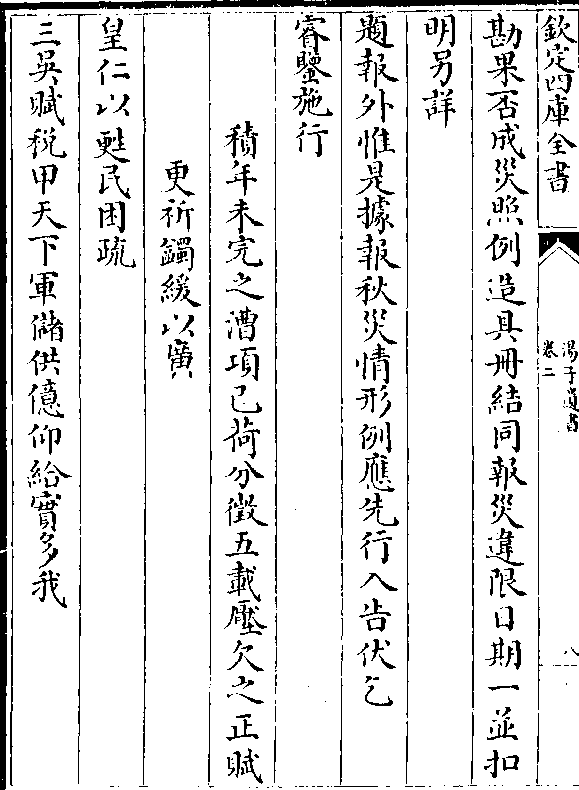 欽定四庫全書
湯子遺書
卷二
八
勘果否成災照例造具冊結同報災違限日期一並扣
明另詳
題報外惟是據報秋災情形例應先行入告伏乞
睿鑒施行
積年未完之漕項已荷分徵五載壓欠之正賦
更祈蠲緩以廣
皇仁以甦民困疏
三吳賦稅甲天下軍儲供億仰給實多我